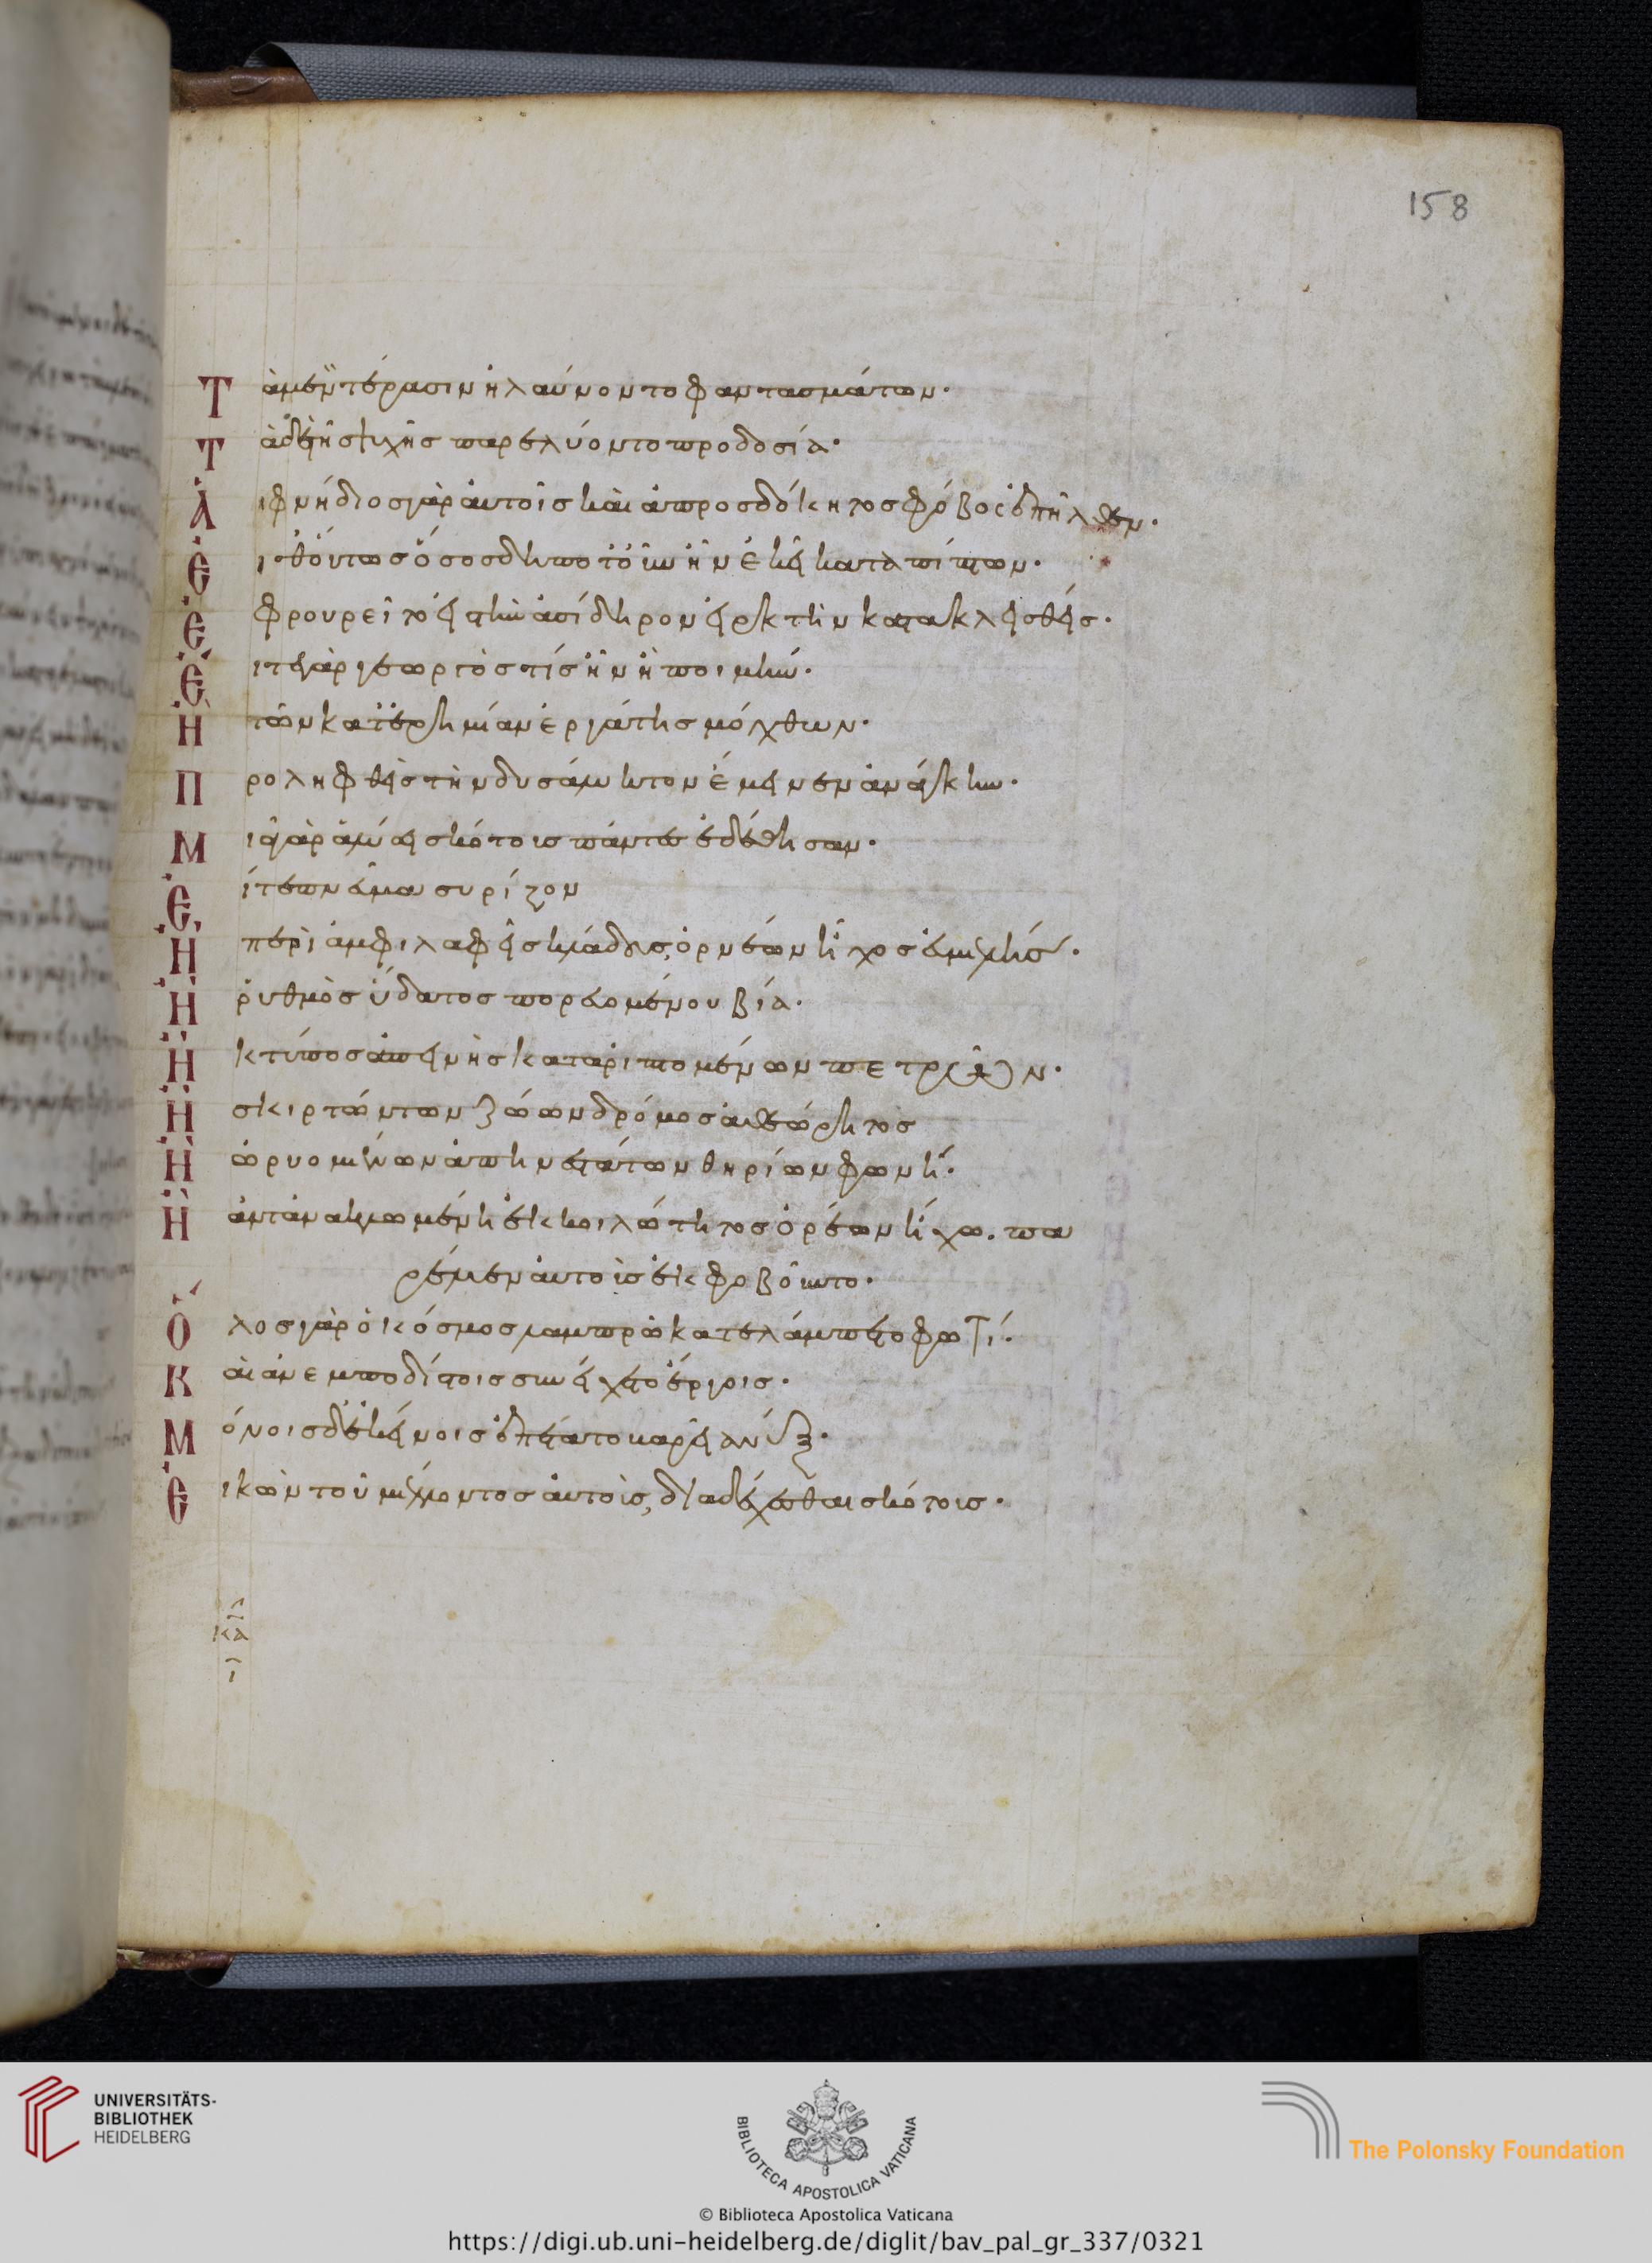 158
Τὰ μὲν τέρασιν ἠλαύνοντο φαντασμάτων·
Τὰ δὲ τῆς ψυχῆς παρελύοντο προδοσία·
Αἰφνήδιος γὰρ αὐτοῖς καὶ ἀπροσδόκητος φόβος ἐπῆλθεν·
Εἶθ' οὕτως ὅσος δήποτ' οὖν ἦν ἐκεῖ καταπίπτων·
Ἐφρουρεῖτο εἰς τὴν ἀσίδηρον εἱρκτὴν κατακλεισθείς·
Εἴτε γὰρ γεωργὸς τίς ἦν ἢ ποιμήν·
Ἢ τῶν κατ' ἐρημίαν ἐργάτης μόχθων·
Προληφθεὶς τὴν δυσάλυκτον ἔμενεν ἀνάγκην·
Μιᾷ γὰρ ἁλύσει σκότους πάντες ἐδέθησαν·
Εἴτε πνεῦμα συρίζον
Ἢ περὶ ἀμφιλαφεῖς κλάδους, ὀρνέων ἦχος εὐμελής·
Ἢ ῥυθμὸς ὕδατος πορευομένου βία·
Ἢ κτύπος ἀπεινὴς καταριπτομένων πετρῶν·
Ἢ σκιρτώντων ζώων δρόμος ἀθεώρητος
Ἢ ὠρυομένων ἀπηνεστάτων θηρίων φωνή·
Ἢ ἀντανακλωμένη ἐκ κοιλότητος ὀρέων ἠχώ. πα
ρέλυεν αὐτοὺς ἐκφοβοῦντα·
Ὅλος γὰρ ὁ κόσμος λαμπρῷ κατελάμπετο φωτί·
Καὶ ἀνεμποδίστοις συνείχετο ἔργοις·
Μόνοις δὲ ἐκείνοις ἐπετέτατο βαρεῖα νύξ·
Εἰκὼν τοῦ μέλλοντος αὐτοὺς, διαδέχεσθαι σκότους·
κα
ι
UNIVERSITÄTS-
BIBLIOTHEK
HEIDELBERG
BIBLIOTECA APOSTOLICA VATICANA
The Polonsky Foundation
© Biblioteca Apostolica Vaticana
https://digi.ub.uni-heidelberg.de/diglit/bav_pal_gr_337/0321